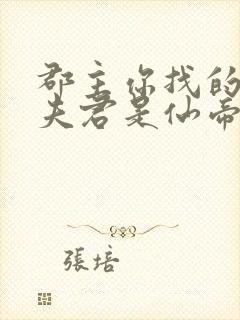 郡主你找的
夫君是仙帝
張培